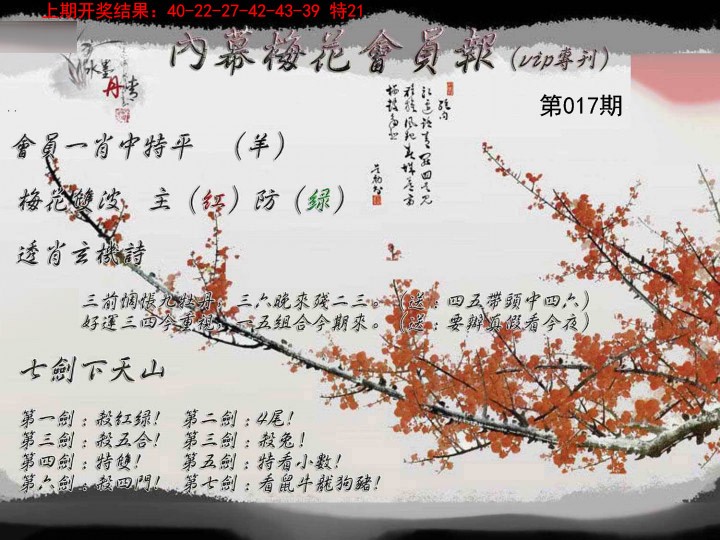 上期开奖结果：40-22-27-42-43-39 特21
內幕梅花會員報(vip專刊)
第017期
會員一肖中特平 （羊）
梅花雙波 主（红）防（绿）
透肖玄機詩
三前惆悵九牡丹，三六晚來殘二三。（送：四五帶頭中四六）
好運三四今重視，一五組合今期來。（送：要辨真假看今夜）
七劍下天山
第一劍：殺红绿! 第二劍：4尾!
第三劍：殺五合! 第三劍：殺兔!
第四劍：特雙! 第五劍：特看小數!
第六劍：殺四門! 第七劍：看鼠牛龍狗豬!